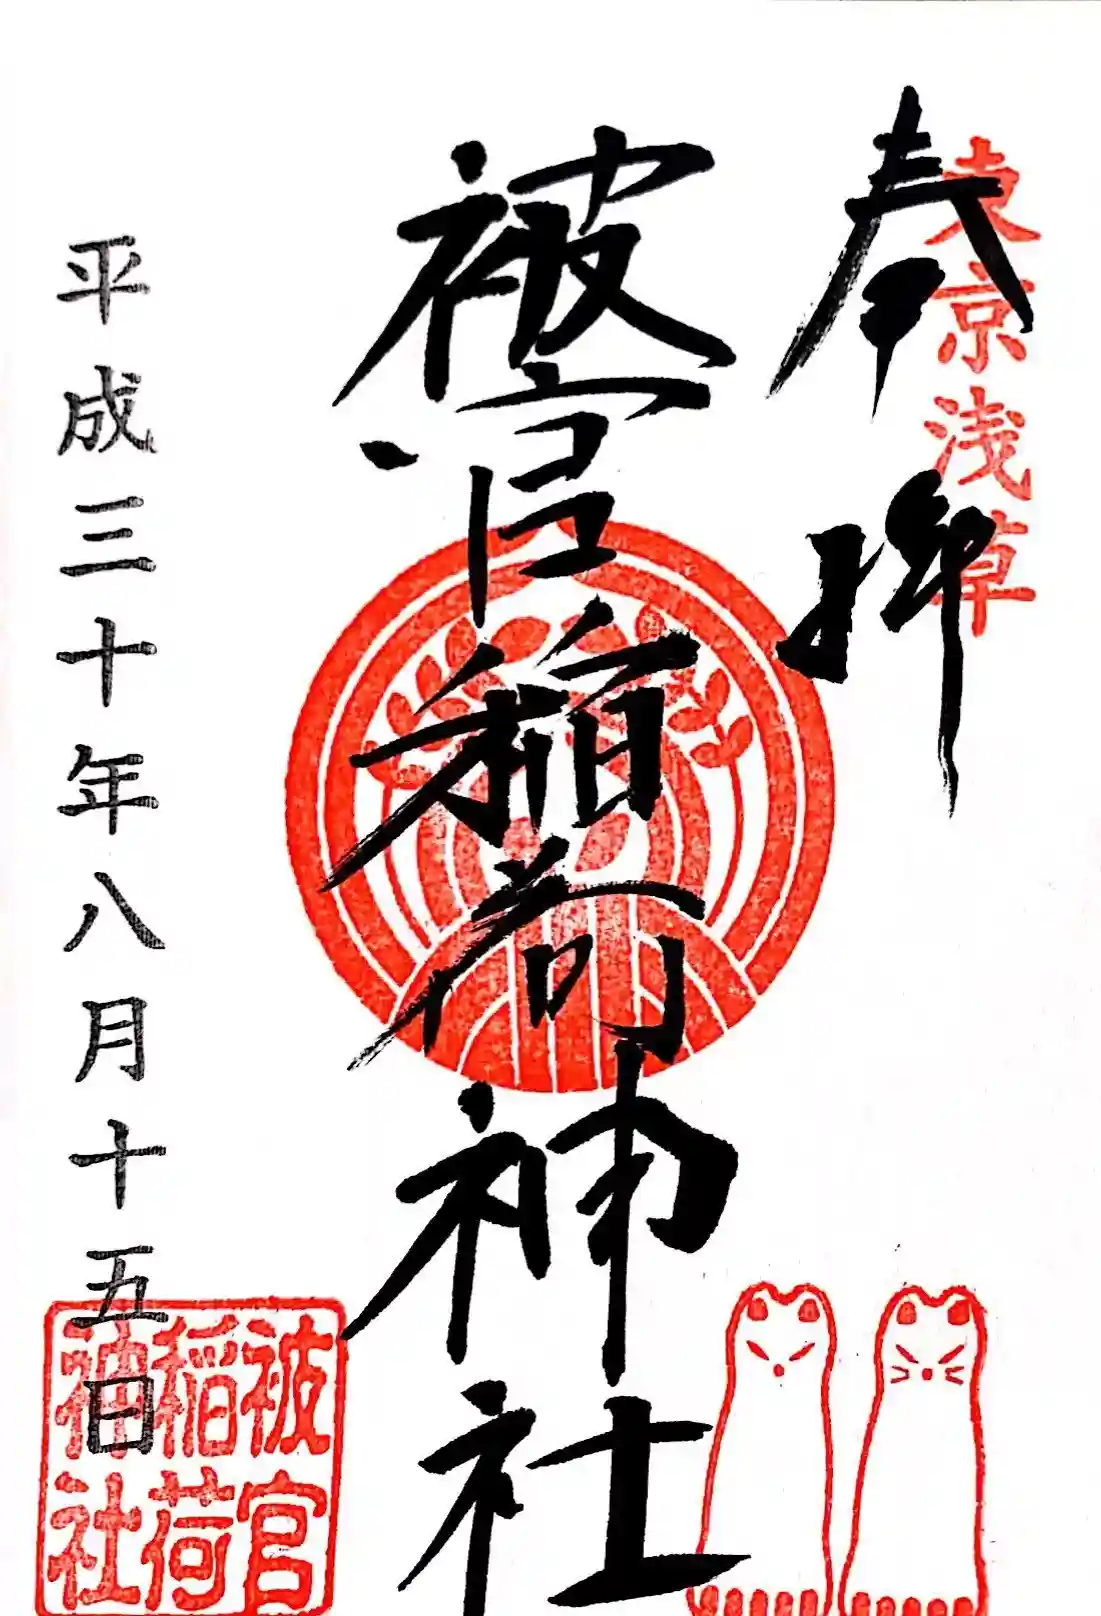 東京浅草
奉拝
被官稲荷神社
平成三十年八月十五日
被官
稲荷
神社